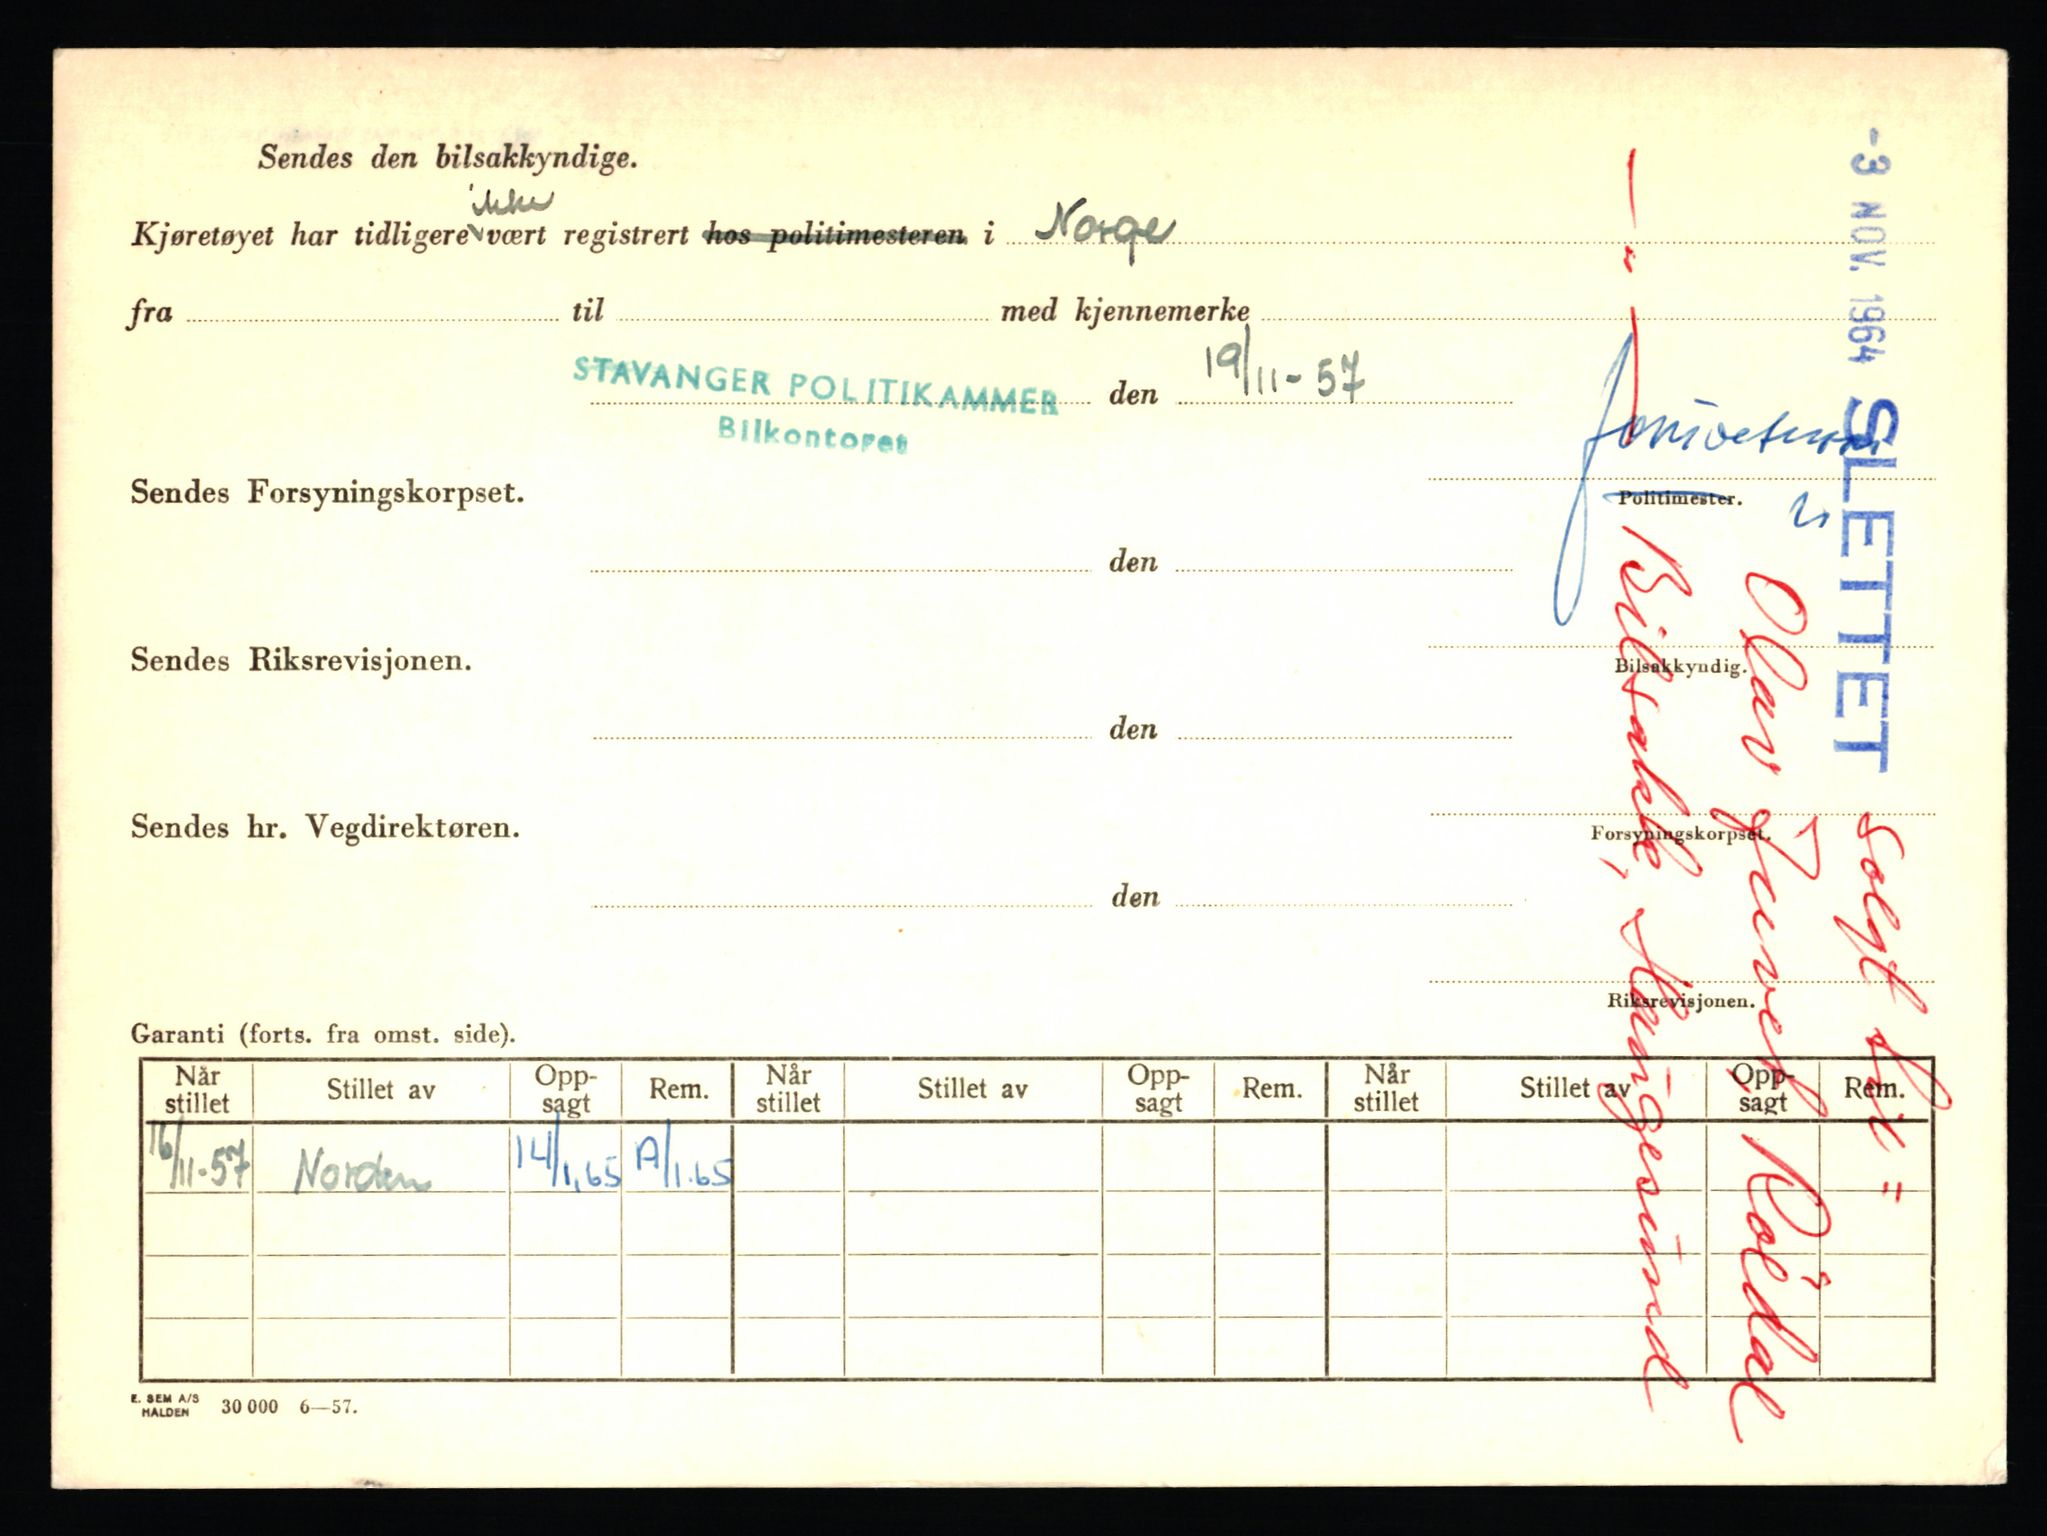 Sendes den bilsakkyndige.
ikke
Kjøretøyet har tidligere vært registrert hos politimesteren i Norge
fra til med kjennemerke
STAVANGER POLITIKAMMER den 19/11-57
Bilkontoret
Politimester.
Sendes Forsyningskorpset.
den
Bilsakkyndig.
Sendes Riksrevisjonen.
den
Forsyningskorpset.
Sendes hr. Vegdirektøren.
den
Riksrevisjonen.
Garanti (forts. fra omst. side).
Når stillet Stillet av Opp-sagt Rem. Når stillet Stillet av Opp-sagt Rem. Når stillet Stillet av Opp-sagt Rem.
16/11-57 Norden 14/1.65 A/1.65
E. SEM A/S
HALDEN 30 000 6—57.
-3 NOV. 1964 SLETTET solgt til =
Olav Juvel Røldal
— " — Bilsakk, Haugesund